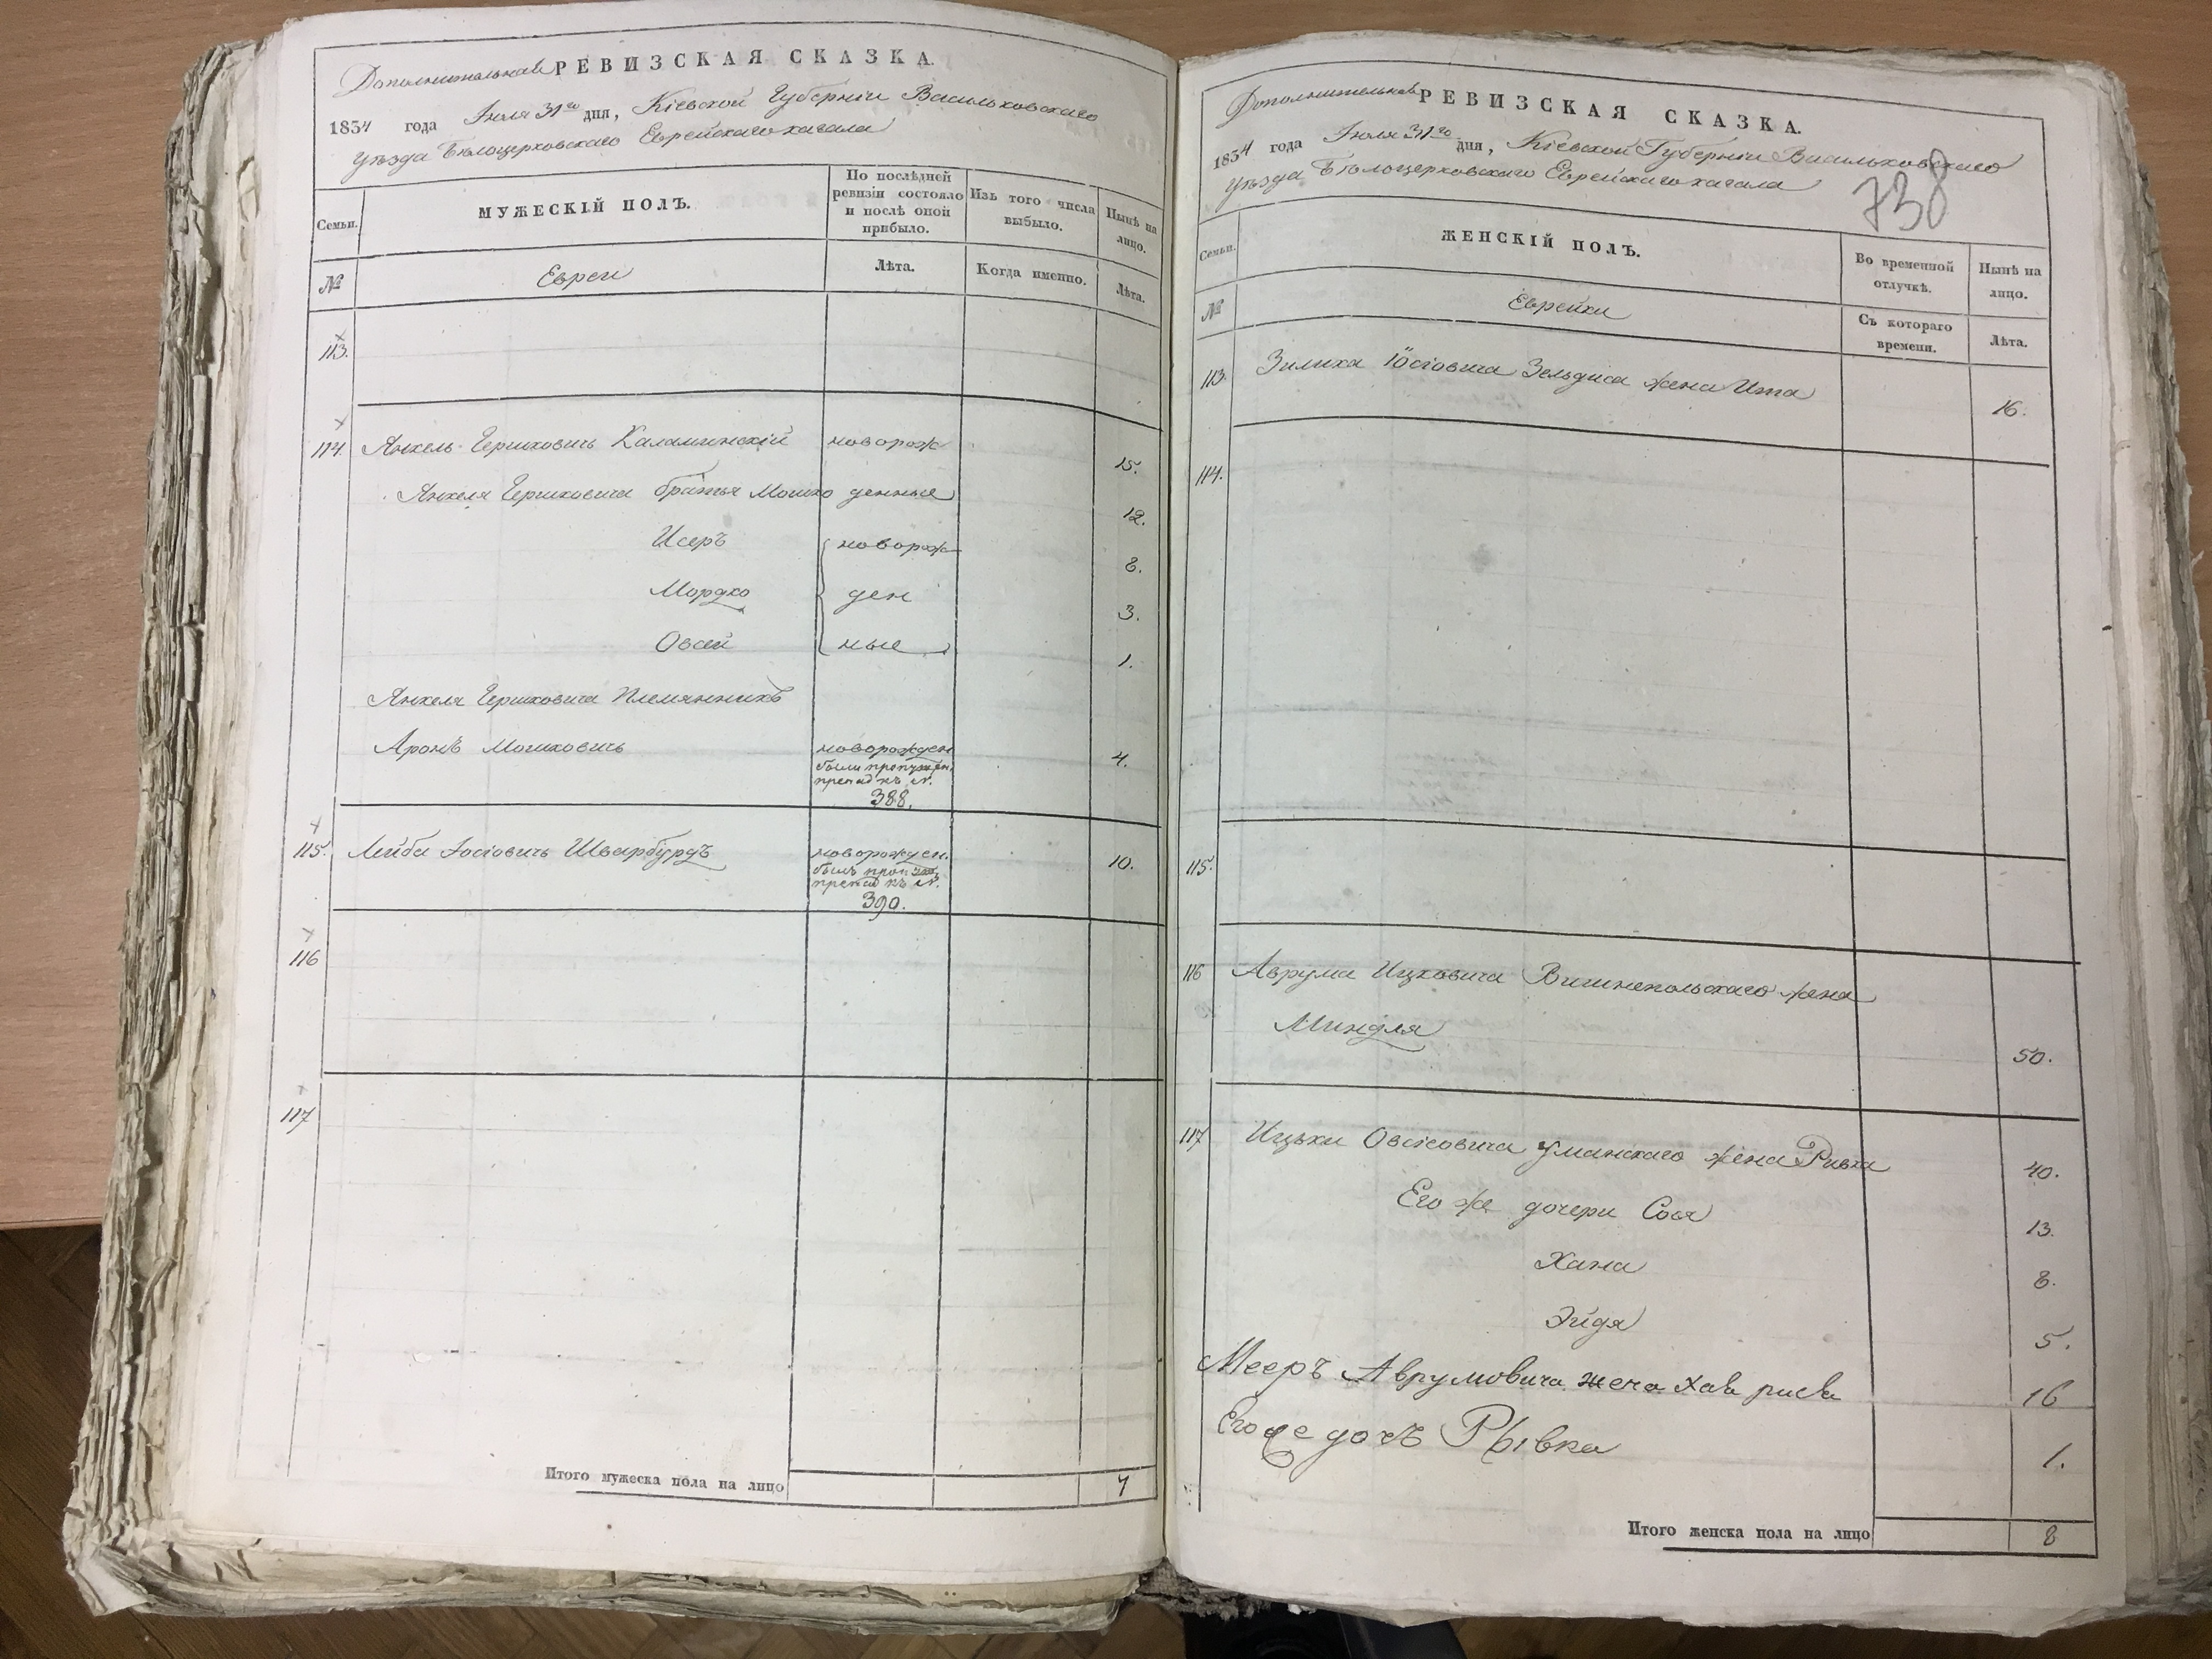 Дополнительная РЕВИЗСКАЯ СКАЗКА.
1834 года Іюля 31го дня, Кіевской Губерніи Васильковскаго
уѣзда Бѣлоцерковскаго Еврейскаго кагала
Семьи.
МУЖЕСКІЙ ПОЛЪ.
По послѣдней
ревизіи состояло
и послѣ оной
прибыло.
Изъ того числа
выбыло.
Нынѣ на
лицо.
№
Евреи
Лѣта.
Когда именно.
Лѣта.
113.
114. Янкель Гершковичь Каламинскій новорож 15.
Янкеля Гершковича братья Мошко денные 12.
Исеръ новорож 8.
Мордко ден 3.
Овсей ные 1.
Янкеля Гершковича Племянникъ
Аронъ Мошковичь новорожден 4.
были пропущен.
388.
115. Лейба Іосіовичь Шварбурдъ новорожден. 10.
былъ
390.
116
117
Итого мужеска пола на лицо 7
Дополнительная РЕВИЗСКАЯ СКАЗКА.
1834 года Іюля 31го дня, Кіевской Губерніи Васильковскаго
уѣзда Бѣлоцерковскаго Еврейскаго кагала
738
Семьи.
ЖЕНСКІЙ ПОЛЪ.
Во временной
отлучкѣ.
Нынѣ на
лицо.
№
Еврейки
Съ котораго
времени.
Лѣта.
113. Зилиха Іосіовича Зельдиса жена Ита 16.
114.
115.
116 Аврума Ицковича Вишнепольскаго жена
Миндля 50.
117 Ицьки Овсіовича Уманскаго жена Ривка 40.
Его же дочери Сося 13.
Хана 8.
Эйдя 5.
Мееръ Аврумовича жена Хав рива 16
Его же дочъ Рывка 1.
Итого женска пола на лицо 8